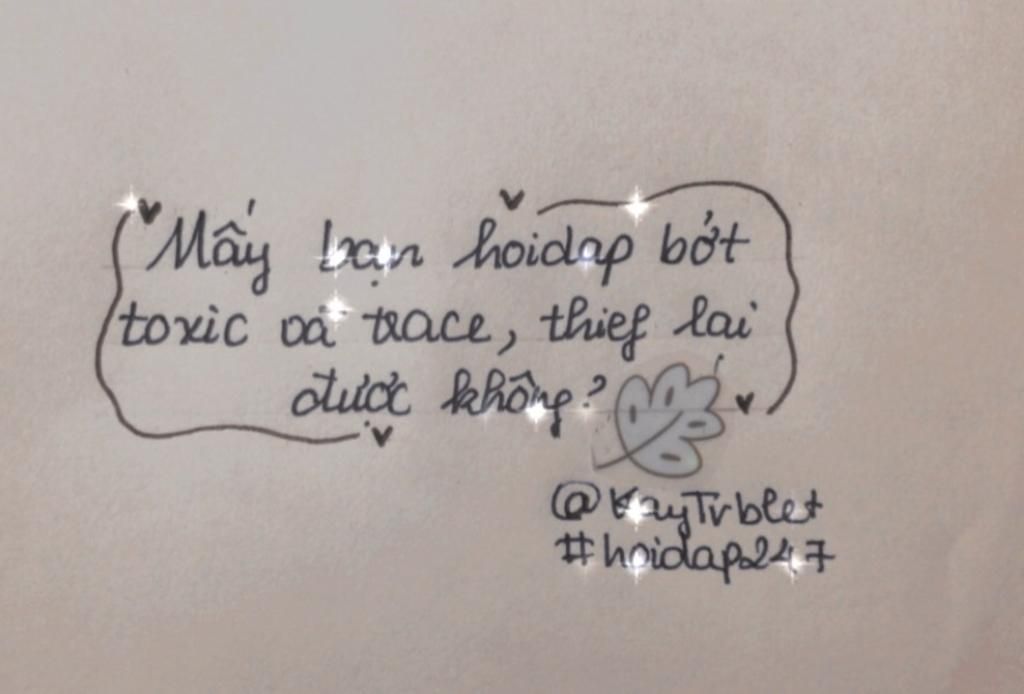 Mấy bạn hoidap bớt
toxic và trace, thief lại
được không?
@KayTrblet
#hoidap247